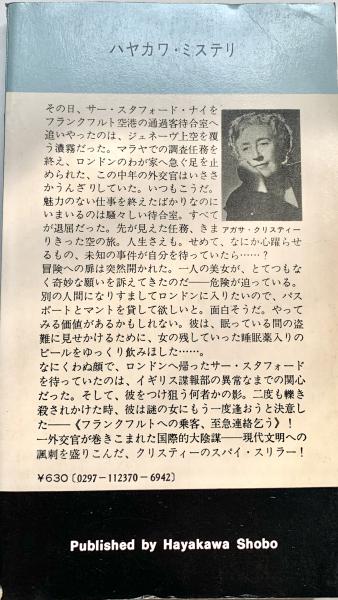 ハヤカワ・ミステリ
その日、サー・スタフォード・ナイを
フランクフルト空港の通過客待合室へ
追いやったのは、ジュネーヴ上空を覆
う濃霧だった。マラヤでの調査任務を
終え、ロンドンのわが家へ急ぐ足を止
められた、この中年の外交官はいささ
かうんざりしていた。いつもこうだ。
魅力のない仕事を終えたばかりなのに
いまいるのは騒々しい待合室。すべて
が退屈だった。先が見えた任務、きま
りきった空の旅。人生さえも。せめて、なにか心躍らせ
るもの、未知の事件が自分を待っていたら……？
アガサ・クリスティー
冒険への扉は突然開かれた。一人の美女が、とてつもな
く奇妙な願いを訴えてきたのだ──危険が迫っている。
別の人間になりすましてロンドンに入りたいので、パス
ポートとマントを貸して欲しいと。面白そうだ。やって
みる価値があるかもしれない。彼は、眠っている間の盗
難に見せかけるために、女の残していった睡眠薬入りの
ビールをゆっくり飲みほした……。
なにくわぬ顔で、ロンドンへ帰ったサー・スタフォード
を待っていたのは、イギリス諜報部の異常なまでの関心
だった。そして、彼をつけ狙う何者かの影。二度も轢き
殺されかけた時、彼は謎の女にもう一度逢おうと決意し
た──《フランクフルトへの乗客、至急連絡乞う》！
一外交官が巻きこまれた国際的大陰謀──現代文明への
諷刺を盛りこんだ、クリスティーのスパイ・スリラー！
¥630〔0297-112370-6942〕
Published by Hayakawa Shobo